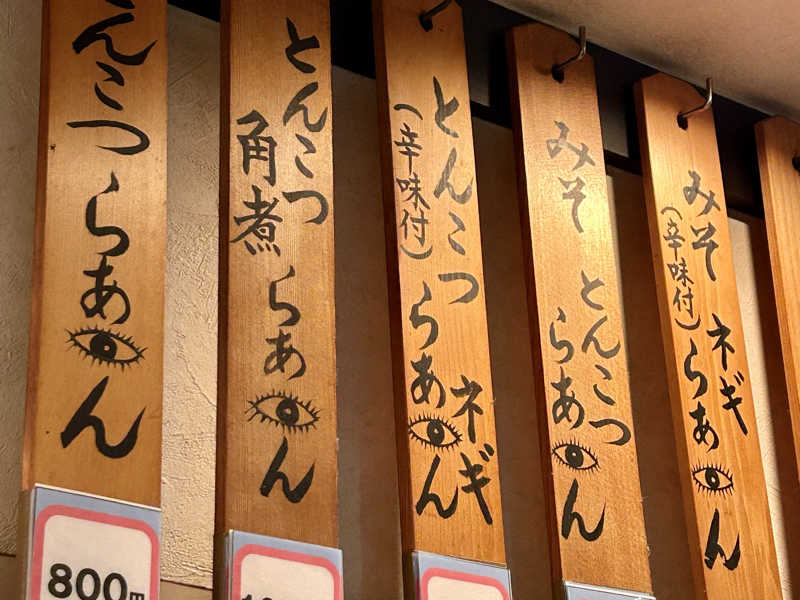 とんこつ
らぁめん
800円
とんこつ
角煮
らぁめん
とんこつ
(辛味付)
ネギ
らぁめん
みそ
とんこつ
らぁめん
みそ
(辛味付)
ネギ
らぁめん